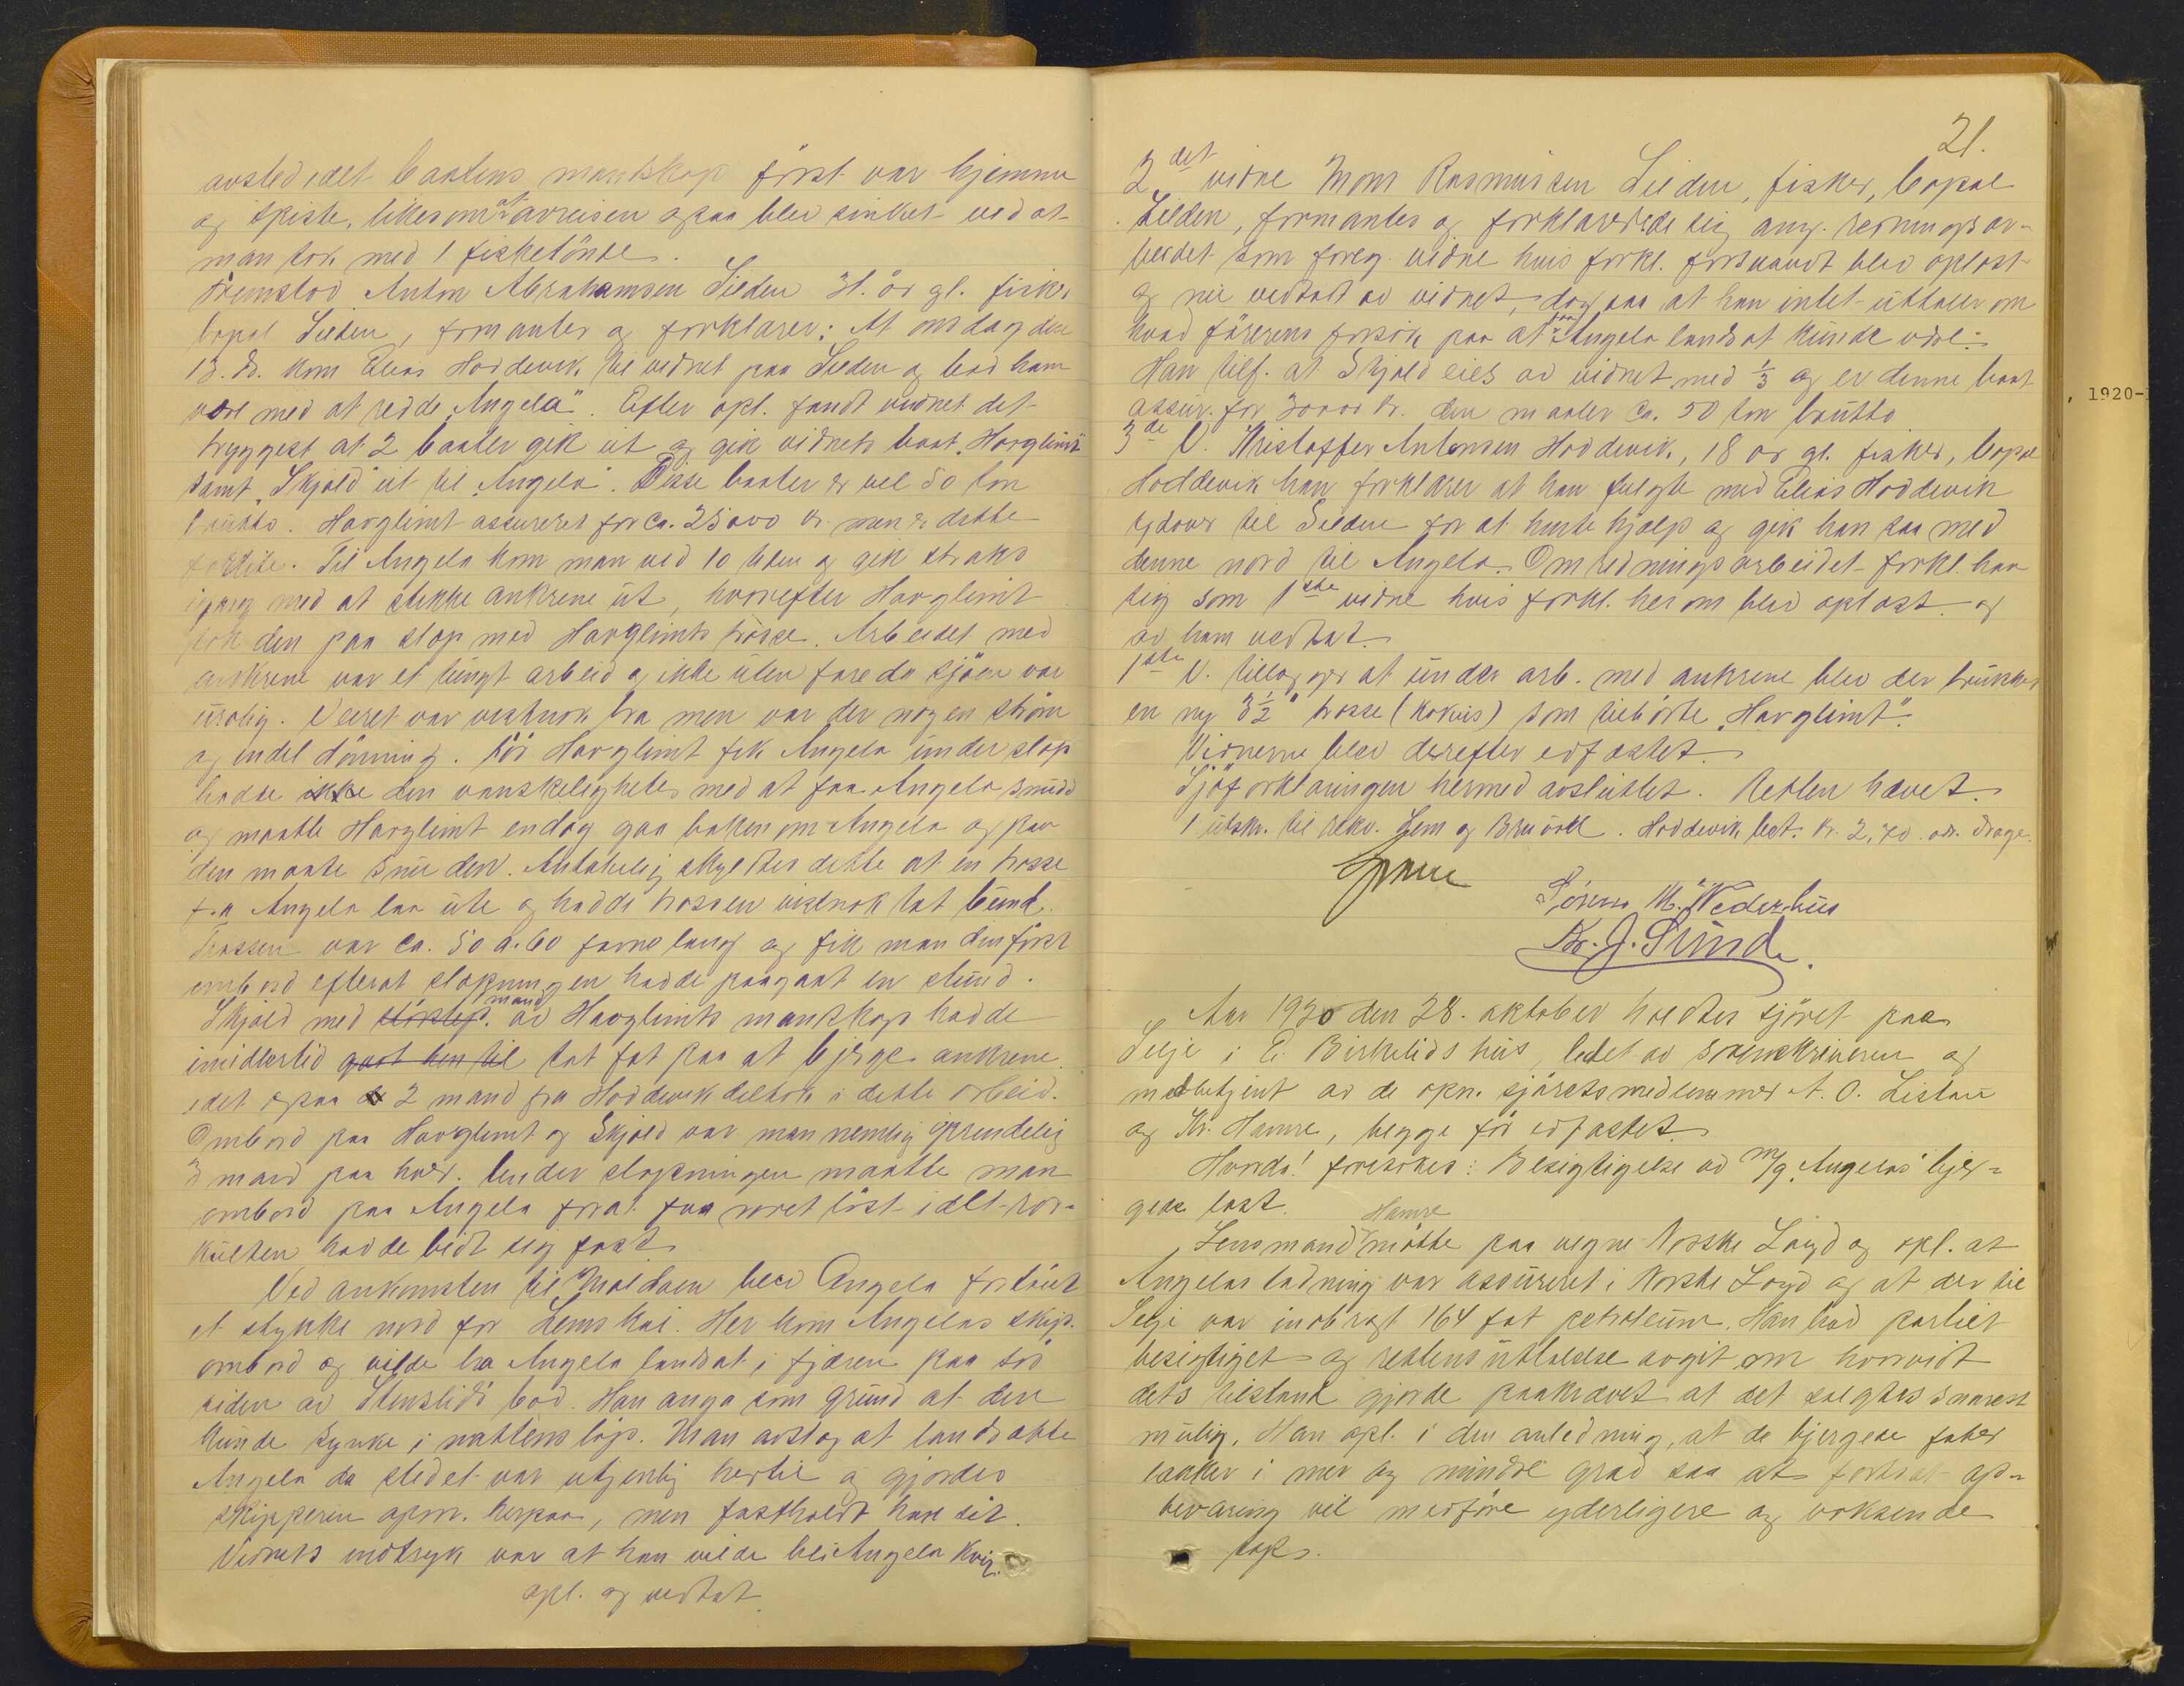 avsted idet baatens mandskap först var hjemme
og spiste, likesom at avreisen ogsaa blev sinket ved at
man tok med 1 fisketönde.
Fremstod Anton Abrahamsen Silden 31. år gl. fisker
bopæl Silden, formantes og forklarer: At onsdag den
13. ds. kom Elias Hoddevik til vidnet paa Silden og bad ham
være med at redde "Angela". Efter opl. fandt vidnet det
tryggest at 2 baater gik ut og gik vidnets baat "Havglimt"
samt "Skjold" ut til "Angela". Disse baater er vel 50 ton
brutto. Havglimt assureret for ca. 25000 kr. men er dette
for lite. Til Angela kom man ved 10 tiden og gik straks
igang med at stikke ankrene ut, hvorefter Havglimt
tok den paa slæp med Havglimts trosse. Arbeidet med
ankrene var et tungt arbeid og ikke uten fare da sjöen var
urolig. Veiret var vistnok bra men var der nogen ström
og endel dönning. För Havglimt fik Angela under slæp
hadde ikke den vanskeligheter med at faa Angela snudd
og maatte Havglimt endog gaa bakenom Angela og paa
den maate snu den. Antakelig skyldtes dette at en trosse
fra Angela laa ute og hadde trossen vistnok tat bund.
Trossen var ca. 50 a. 60 favne lang og fik man den först
ombord efterat slæpningen hadde paagaat en stund.
Skjold med störstep. mand av Havglimts mandskap hadde
imidlertid gaat hen til tat fat paa at bjerge ankrene
idet ogsaa 2 mand fra Hoddevik deltok i dette arbeid.
Ombord paa Havglimt og Skjold var man nemlig oprindelig
3 mand paa hver. Under slæpningen maatte man
ombord paa Angela forat faa roret löst idet ror-
kulten hadde bidt sig fast.
Ved ankomsten til Moldøen blev Angela fortöiet
et stykke nord for Lems kai. Her kom Angelas skip.
ombord og vilde ha Angela landsat i fjæren paa sö
siden av Stenslids bod. Han anga som grund at den
kunde synke i nattens löp. Man avslog at landsætte
Angela da stedet var utjenlig hertil og gjordes
skipperen opm. herpaa, men fastholdt han sit.
Vidnets indtryk var at han vilde bli Angela kvit.
opl. og vedtat.
21.
2det vidne Mons Rasmussen Silden, fisker, bopæl
Silden, formantes og forklarede sig ang. redningsar-
beidet som foreg. vidne hvis forkl. forsaavidt blev oplæst
og nu vedtat av vidnet, dog saa at han intet uttaler om
hvad förerens forsök paa at faa Angela landsat kunde være.
Han tilf. at Skjold eies av vidnet med 1/3 og er denne baat
assur. for 30000 kr. den maaler ca. 50 ton brutto
3de V. Kristoffer Antonsen Hoddevik, 18 år gl. fisker, bopæl
Hoddevik han forklarer at han fulgte med Elias Hoddevik
sydover til Silden for at hente hjælp og gik han saa med
denne nord til Angela. Om redningsarbeidet forkl. han
sig som 1ste vidne hvis forkl. her om blev oplæst og
av ham vedtat.
1ste V. tillægger at under arb. med ankrene blev der brukket
en ny 3 1/2" trosse (kokus) som tilhörte "Havglimt".
Vidnerne blev derefter edfæstet.
Sjöforklaringen hermed avsluttet. Retten hævet.
1 utskr. til rekv. Lem og Bruvoll. Hoddevik bet. kr. 2,70
Sören M. Nederhus
Kr. J. Sunde.
Aar 1920 den 28. oktober holdtes sjöret paa
Selje i P. Birkelids hus, ledet av sorenskriveren og
metbetjent av de opn. sjöretsmedlemmer A. O. Listau
og Kr. Hamre, begge för edfæstet.
Hvorda! foretokes: Besigtigelse av m/g. "Angelas" bjer-
gede last.
Lensmand Hamre mötte paa vegne Norske Loyd og opl. at
Angelas ladning var assureret i Norske Loyd og at der til
Selje var indbragt 164 fat petroleum. Han bad partiet
besigtiget og rettens uttalelse avgit om hvorvidt
dets tilstand gjorde paakrævet at det sælgtes snarest
mulig. Han opl. i den anledning, at de bjergede fater
lækker i mer og mindre grad saa at fortsat op-
bevaring vil medföre yderligere og voksende
tap.